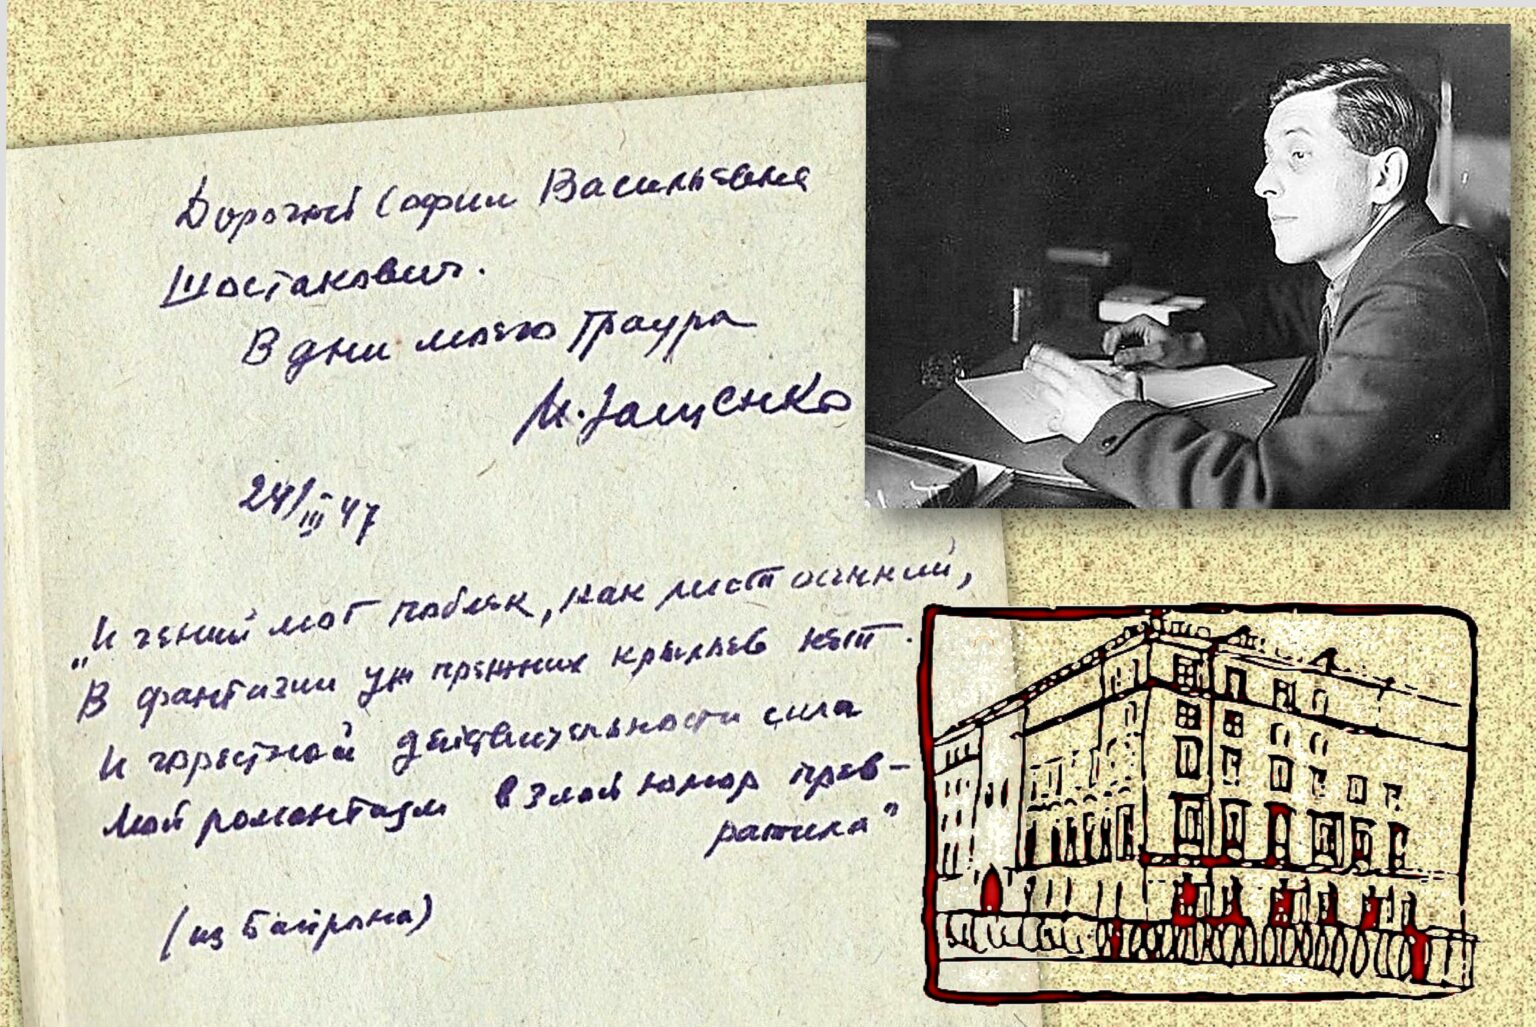 Дорогой Софии Васильевне
Шостакович.
В дни моего траура
М. Зощенко
24/III 47
"И гений мой поблек, как лист осенний,
В фантазии уж прежних крыльев нет.
И горестной действительности сила
Мой романтизм в злой юмор прев-
ратила"
(из Байрона)